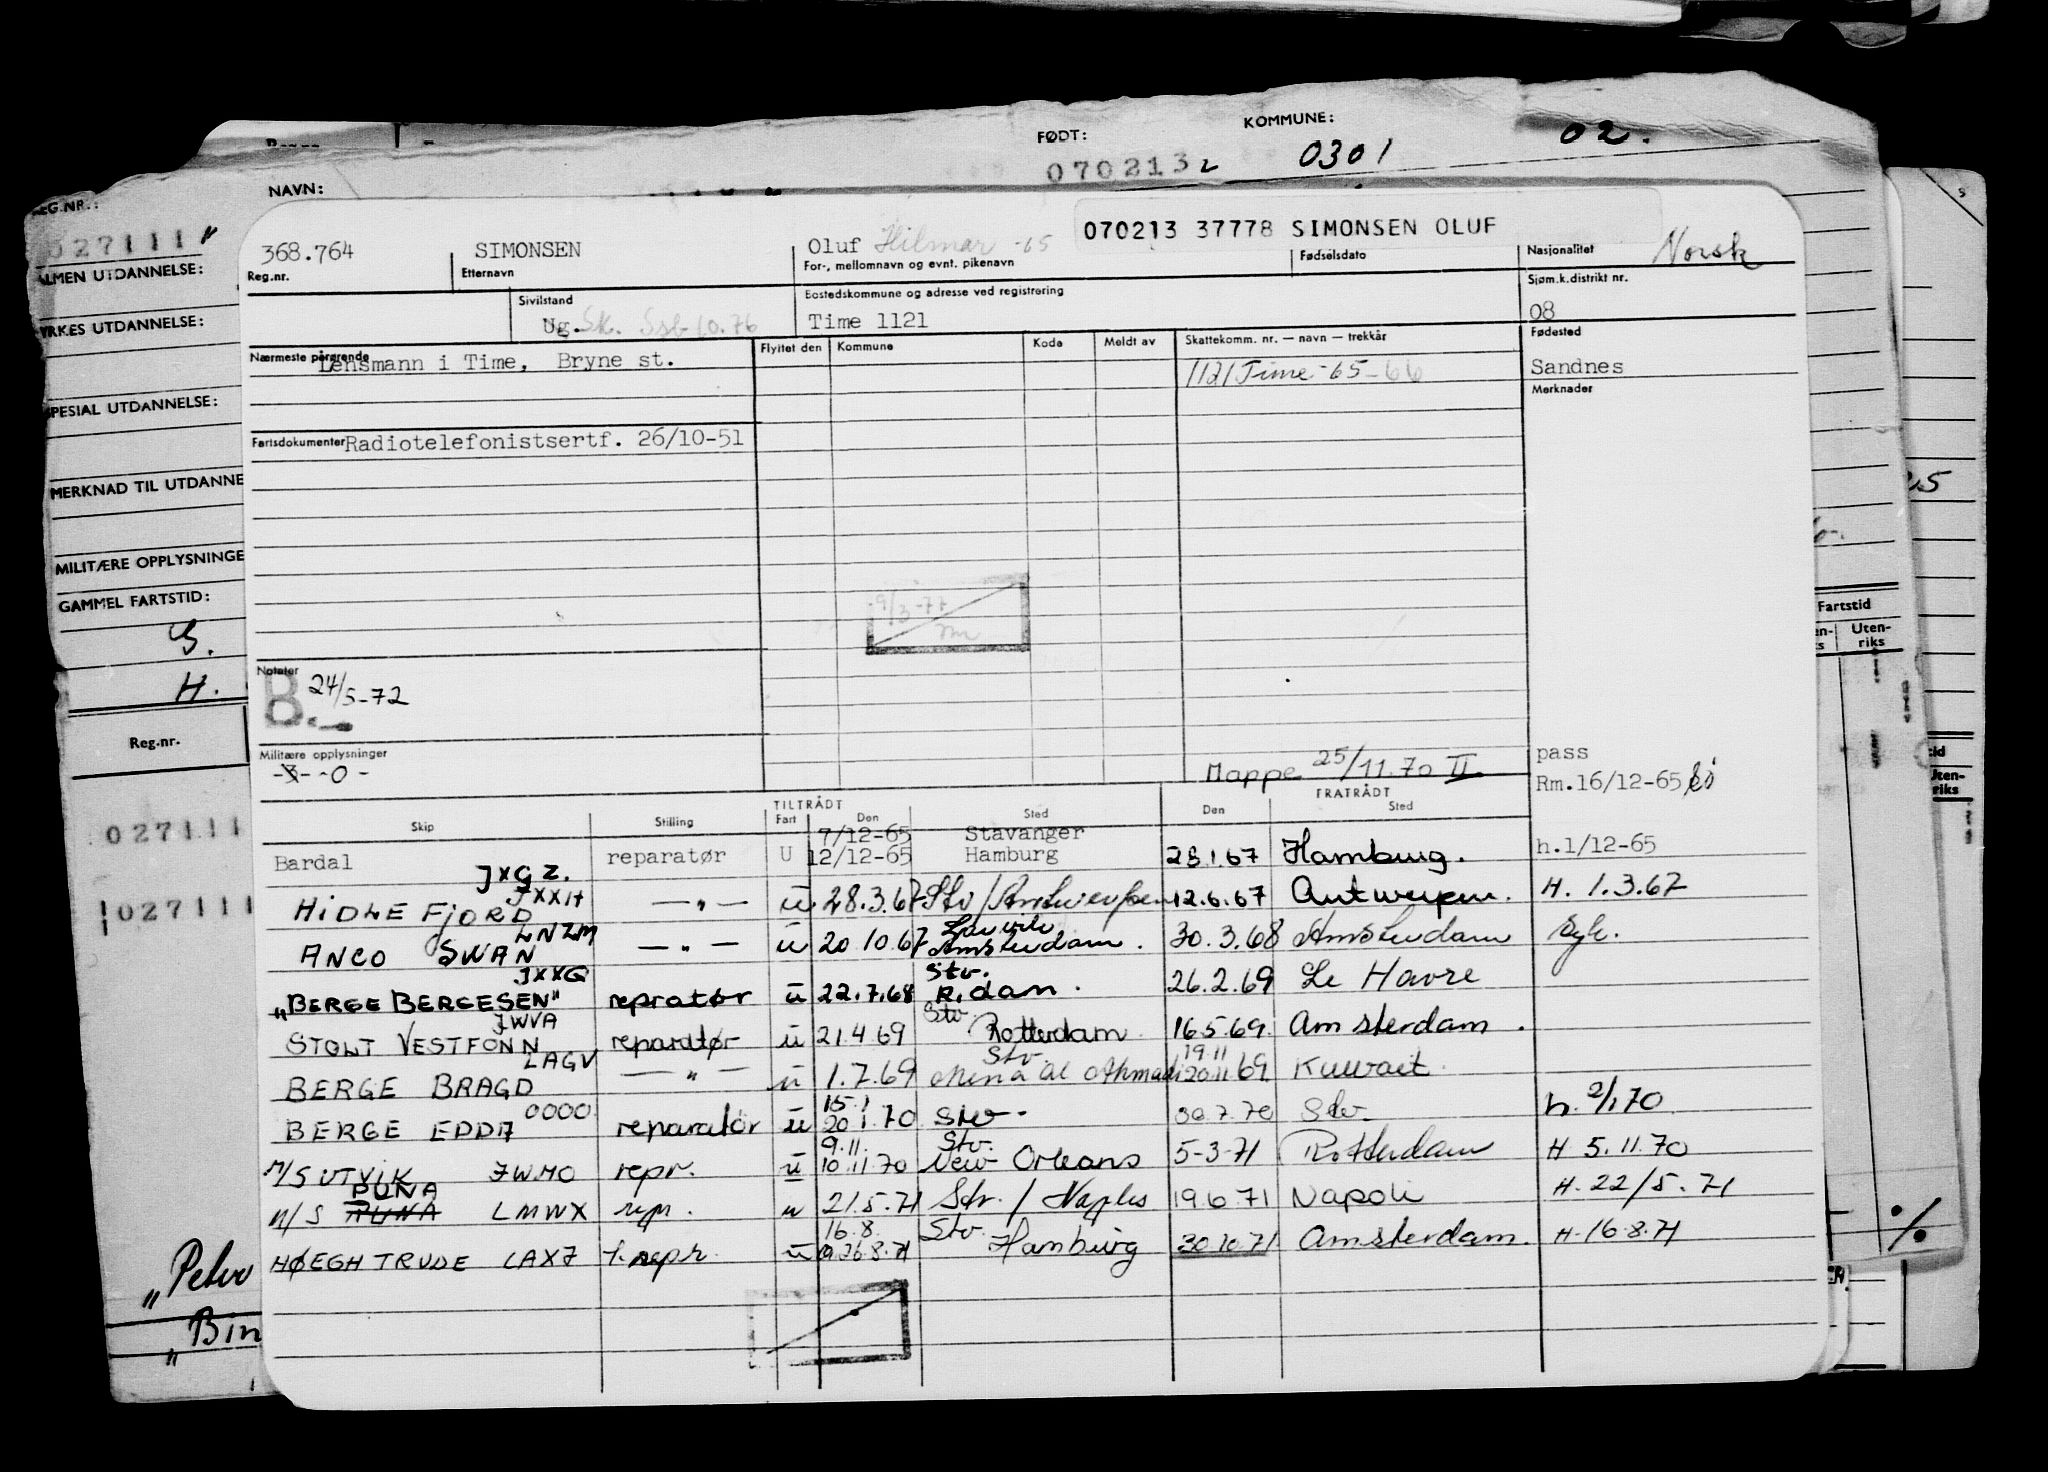 FØDT: KOMMUNE:
070213 2 0301 02.
NAVN:
EG.NR.:
027111 "
070213 37778 SIMONSEN OLUF
368.764 SIMONSEN Oluf Hilmar -65 Norsk
Reg.nr. Etternavn For-, mellomnavn og evnt. pikenavn Fødselsdato Nasjonalitet
LMEN UTDANNELSE:
Sivilstand Bostedskommune og adresse ved registrering Sjøm.k.distrikt nr.
Ug. Sk. Ssb 10.76 Time 1121 08
YRKES UTDANNELSE:
Nærmeste pårørende Flyttet den Kommune Kode Meldt av Skattekomm. nr. — navn — trekkår Fødested
Lensmann i Time, Bryne st. 1121 Time -65-66 Sandnes
Merknader
PESIAL UTDANNELSE:
Fartsdokumenter Radiotelefonistsertf. 26/10-51
MERKNAD TIL UTDANNE
25
MILITÆRE OPPLYSNINGE
GAMMEL FARTSTID:
9/3-77
Fartstid
Uten-
riks
S.
H.
Notater
B. 24/5-72
Reg.nr.
Militære opplysninger
-3- -0-
Mappe 25/11.70 II
pass
Rm.16/12-65
TILTRÅDT FRATRÅDT
Skip Stilling Fart Den Sted Den Sted
7/12-65 Stavanger
Bardal reparatør U 12/12-65 Hamburg 23.1.67 Hamburg. h.1/12-65
JXGZ.
027111
JXXH
HIDLE FJORD — " — u 28.3.67 Stv/Antwerpen 12.6.67 Antwerpen. H. 1.3.67
027111
LNZM
ANCO SWAN — " — u 20.10.67 Amsterdam. 30.3.68 Amsterdam Syk.
JXXG Stv.
"BERGE BERGESEN" repratør u 22.7.68 R.dam. 26.2.69 Le Havre
JWVA Stv
STOLT VESTFONN reparatør u 21.4 69 Rotterdam 16.5.69. Amsterdam.
LAGV Stv. 19.11
BERGE BRAGD — " — u 1.7.69 Mena al Ahmadi 20.11 69 Kuwait.
0000 15.1
BERGE EDDA reparatør u 20 1.70 Stv. 30.7.70 Stv h. 2/1 70
9.11. Stv.
M/S UTVIK JWMO repr. u 10.11 70 New Orleans 5-3-71 Rotterdam H 5.11.70
PUNA
M/S PUNA LMWX repr. u 21.5.71 Stv./Naples 19.6 71 Napoli H. 22/5.71
16.8. Stv.
HØEGH TRUDE LAXJ 1. repr. u 26.8.71 Hamburg 30.10.71 Amsterdam. H. 16.8.71
./.
"Peter
"Bin